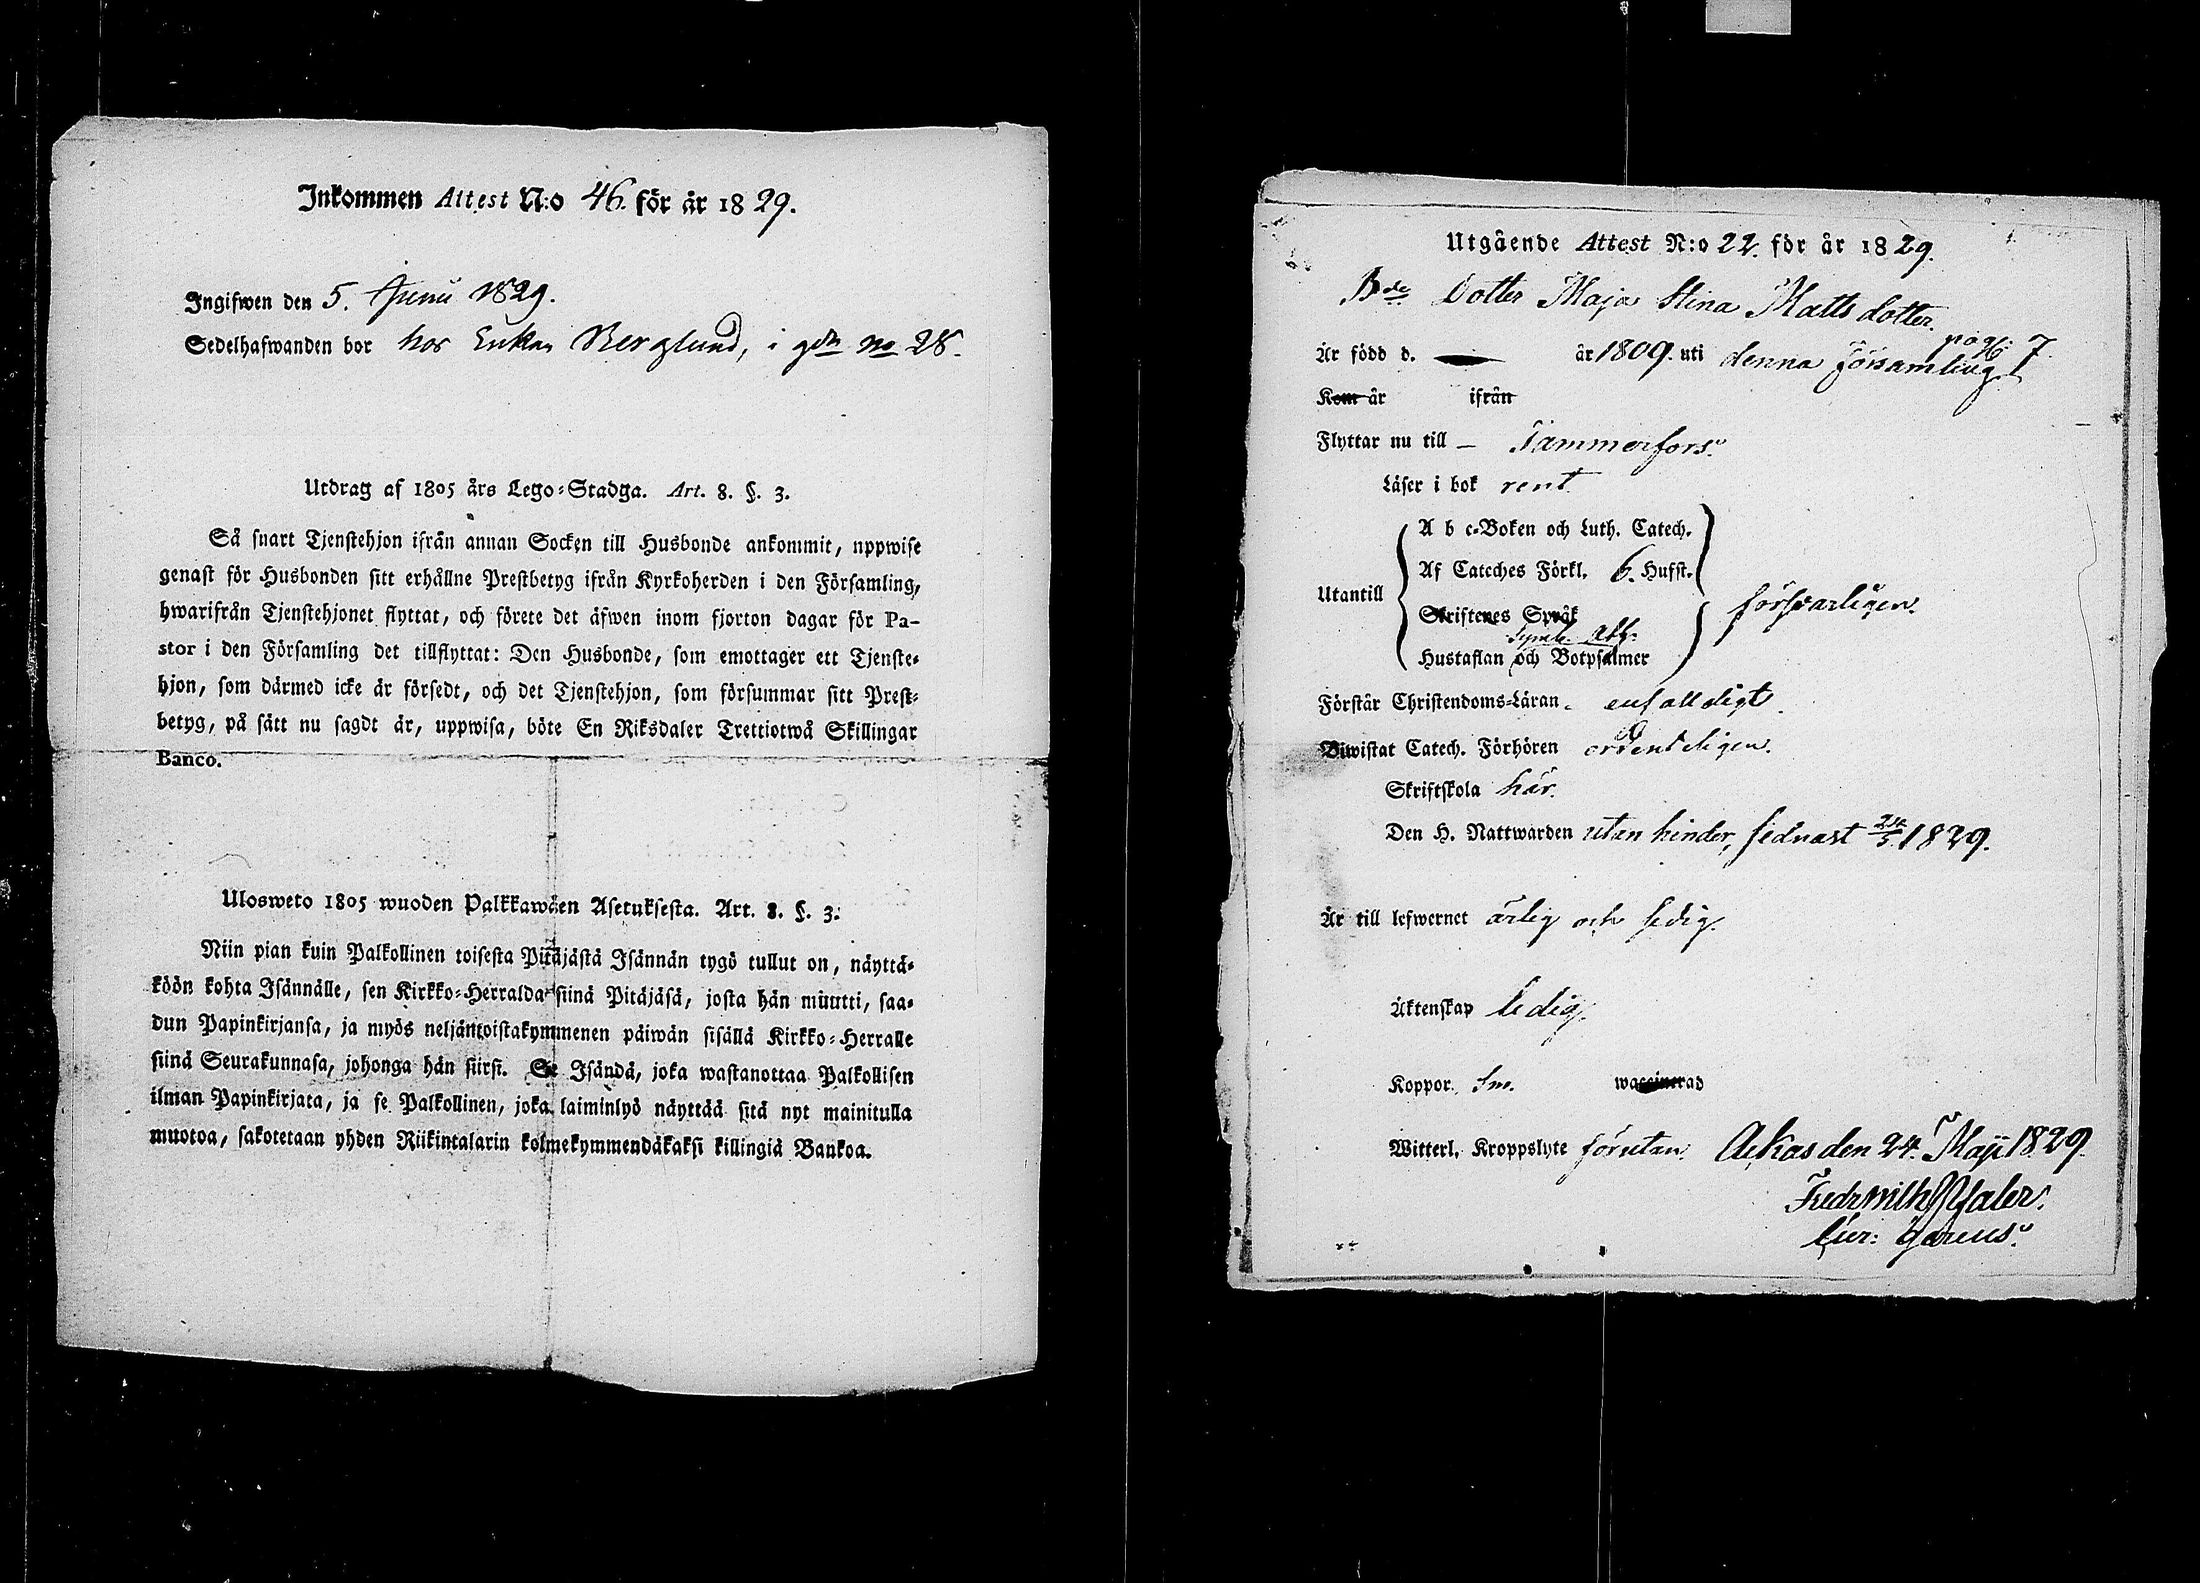 Inkommen Attest N:o 46. för år 1829.
Ingifwen den 5. Junii 1829.
Sedelhafwanden bor hos Enkan Berglund, i gdn No 28.
Utdrag af 1805 års Lego-Stadga. Art. 8. §. 3.
Så snart Tjenstehjon ifrån annan Socken till Husbonde ankommit, uppwise
genast för Husbonden sitt erhållne Prestbetyg ifrån Kyrkoherden i den Församling,
hwarifrån Tjenstehjonet flyttat, och förete det äfwen inom fjorton dagar för Pa-
stor i den Församling det tillflyttat: Den Husbonde, som emottager ett Tjenste-
hjon, som därmed icke är försedt, och det Tjenstehjon, som försummar sitt Prest-
betyg, på sätt nu sagdt är, uppwisa, böte En Riksdaler Trettiotwå Skillingar
Banco.
Ulosweto 1805 wuoden Palkkawäen Asetuksesta. Art. 8. §. 3.
Niin pian kuin Palkollinen toisesta Pitäjästä Isännän tygö tullut on, näyttä-
köön kohta Isännälle, sen Kirkko-Herralda siinä Pitäjäsä, josta hän muutti, saa-
dun Papinkirjansa, ja myös neljäntoistakymmenen päiwän sisällä Kirkko-Herralle
siinä Seurakunnasa, johonga hän siirsi. Se Isändä, joka wastanottaa Palkollisen
ilman Papinkirjata, ja se Palkollinen, joka laiminlyö näyttää sitä nyt mainitulla
muotoa, sakotetaan yhden Riikintalarin kolmekymmendäkaksi killingiä Bankoa.
Utgående Attest N:o 22. för år 1829.
Bde Dotter Maja Stina Matts dotter.
pag. 7.
Är född d. år 1809. uti denna församling
Kom år ifrån
Flyttar nu till – Tammerfors.
Läser i bok rent.
A b c-Boken och Luth. Catech.
Af Cateches Förkl. 6. Hufst.
Utantill
Skriftenes Språk
Symb. Ath.
Hustaflan och Botpsalmer
försvarligen.
Förstår Christendoms-Läran. enfaldigt.
Biwistat Catech. Förhören ordenteligen.
Skriftskola här.
Den H. Nattwarden utan hinder, sednast 24/5 1829.
Är till lefwernet ärlig och sedig.
Äktenskap ledig.
Koppor. waccinerad
Witterl. Kroppslyte förutan. Ackas den 24. Maji 1829.